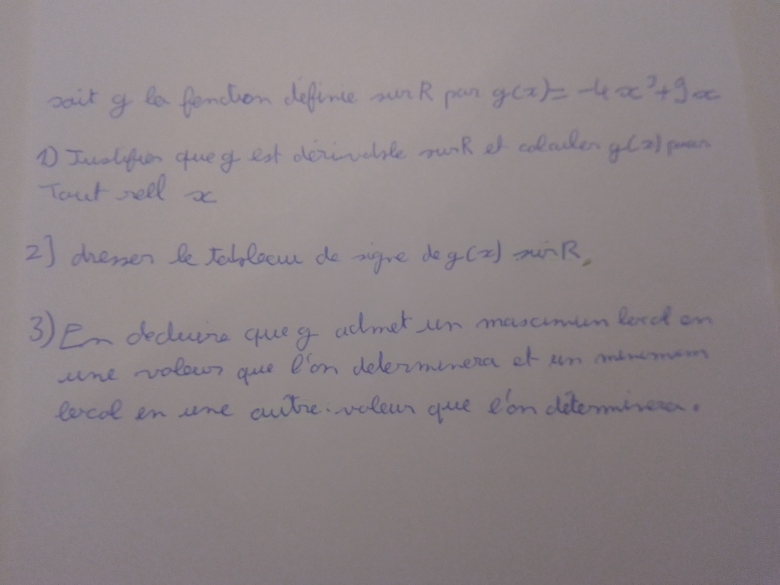 soit g la fonction définie sur R par g(x) = -4x³+9x
1) Justifier que g est dérivable sur R et calculer g(x) pour
Tout réel x
2] dresser le tableau de signe de g(x) sur R.
3) En deduire que g admet un maximum local en
une valeur que l'on determinera et un minimum
local en une autre valeur que l'on déterminera.